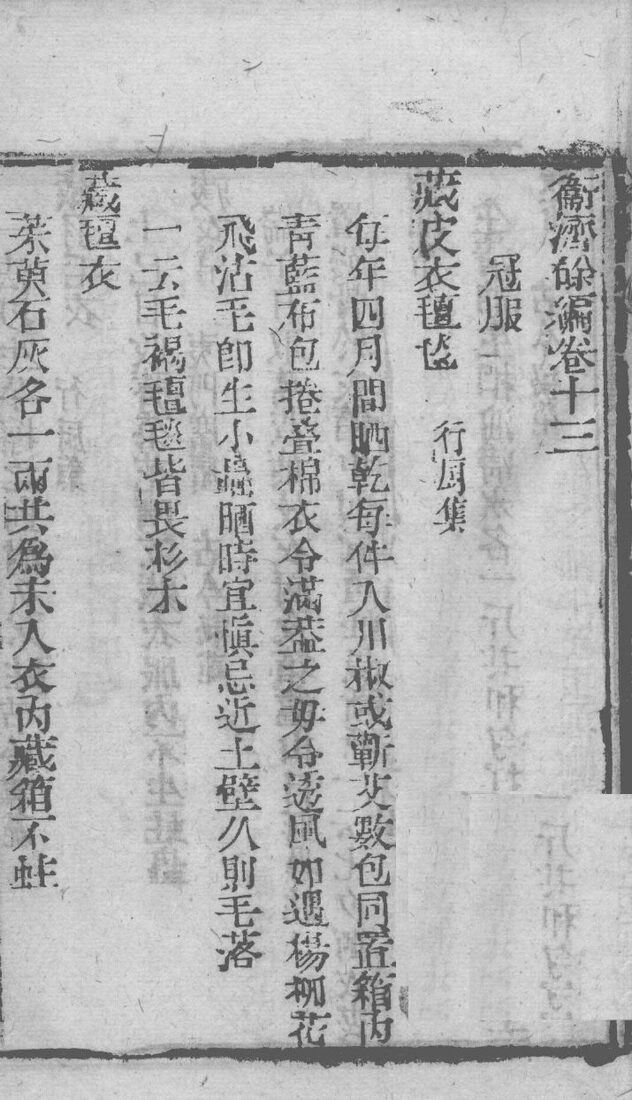 衞濟餘編卷十三
冠服
藏皮衣氊毯　行厨集
每年四月間晒乾每件入川椒或蘄艾數包同置箱內
青藍布包捲疊棉衣令滿葢之毋令透風如遇楊柳花
飛沾毛卽生小蟲晒時宜愼忌近土壁久則毛落
一云毛褐氊毯皆畏杉木
藏氊衣
茱萸石灰各一兩共爲末入衣內藏箱不蛀